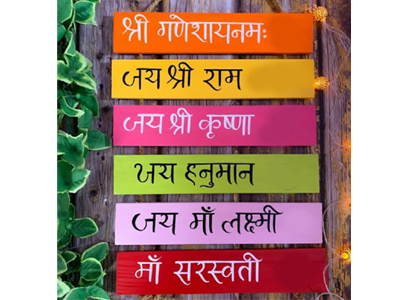 श्री गणेशायनमः
जय श्री राम
जय श्री कृष्णा
जय हनुमान
जय माँ लक्ष्मी
माँ सरस्वती